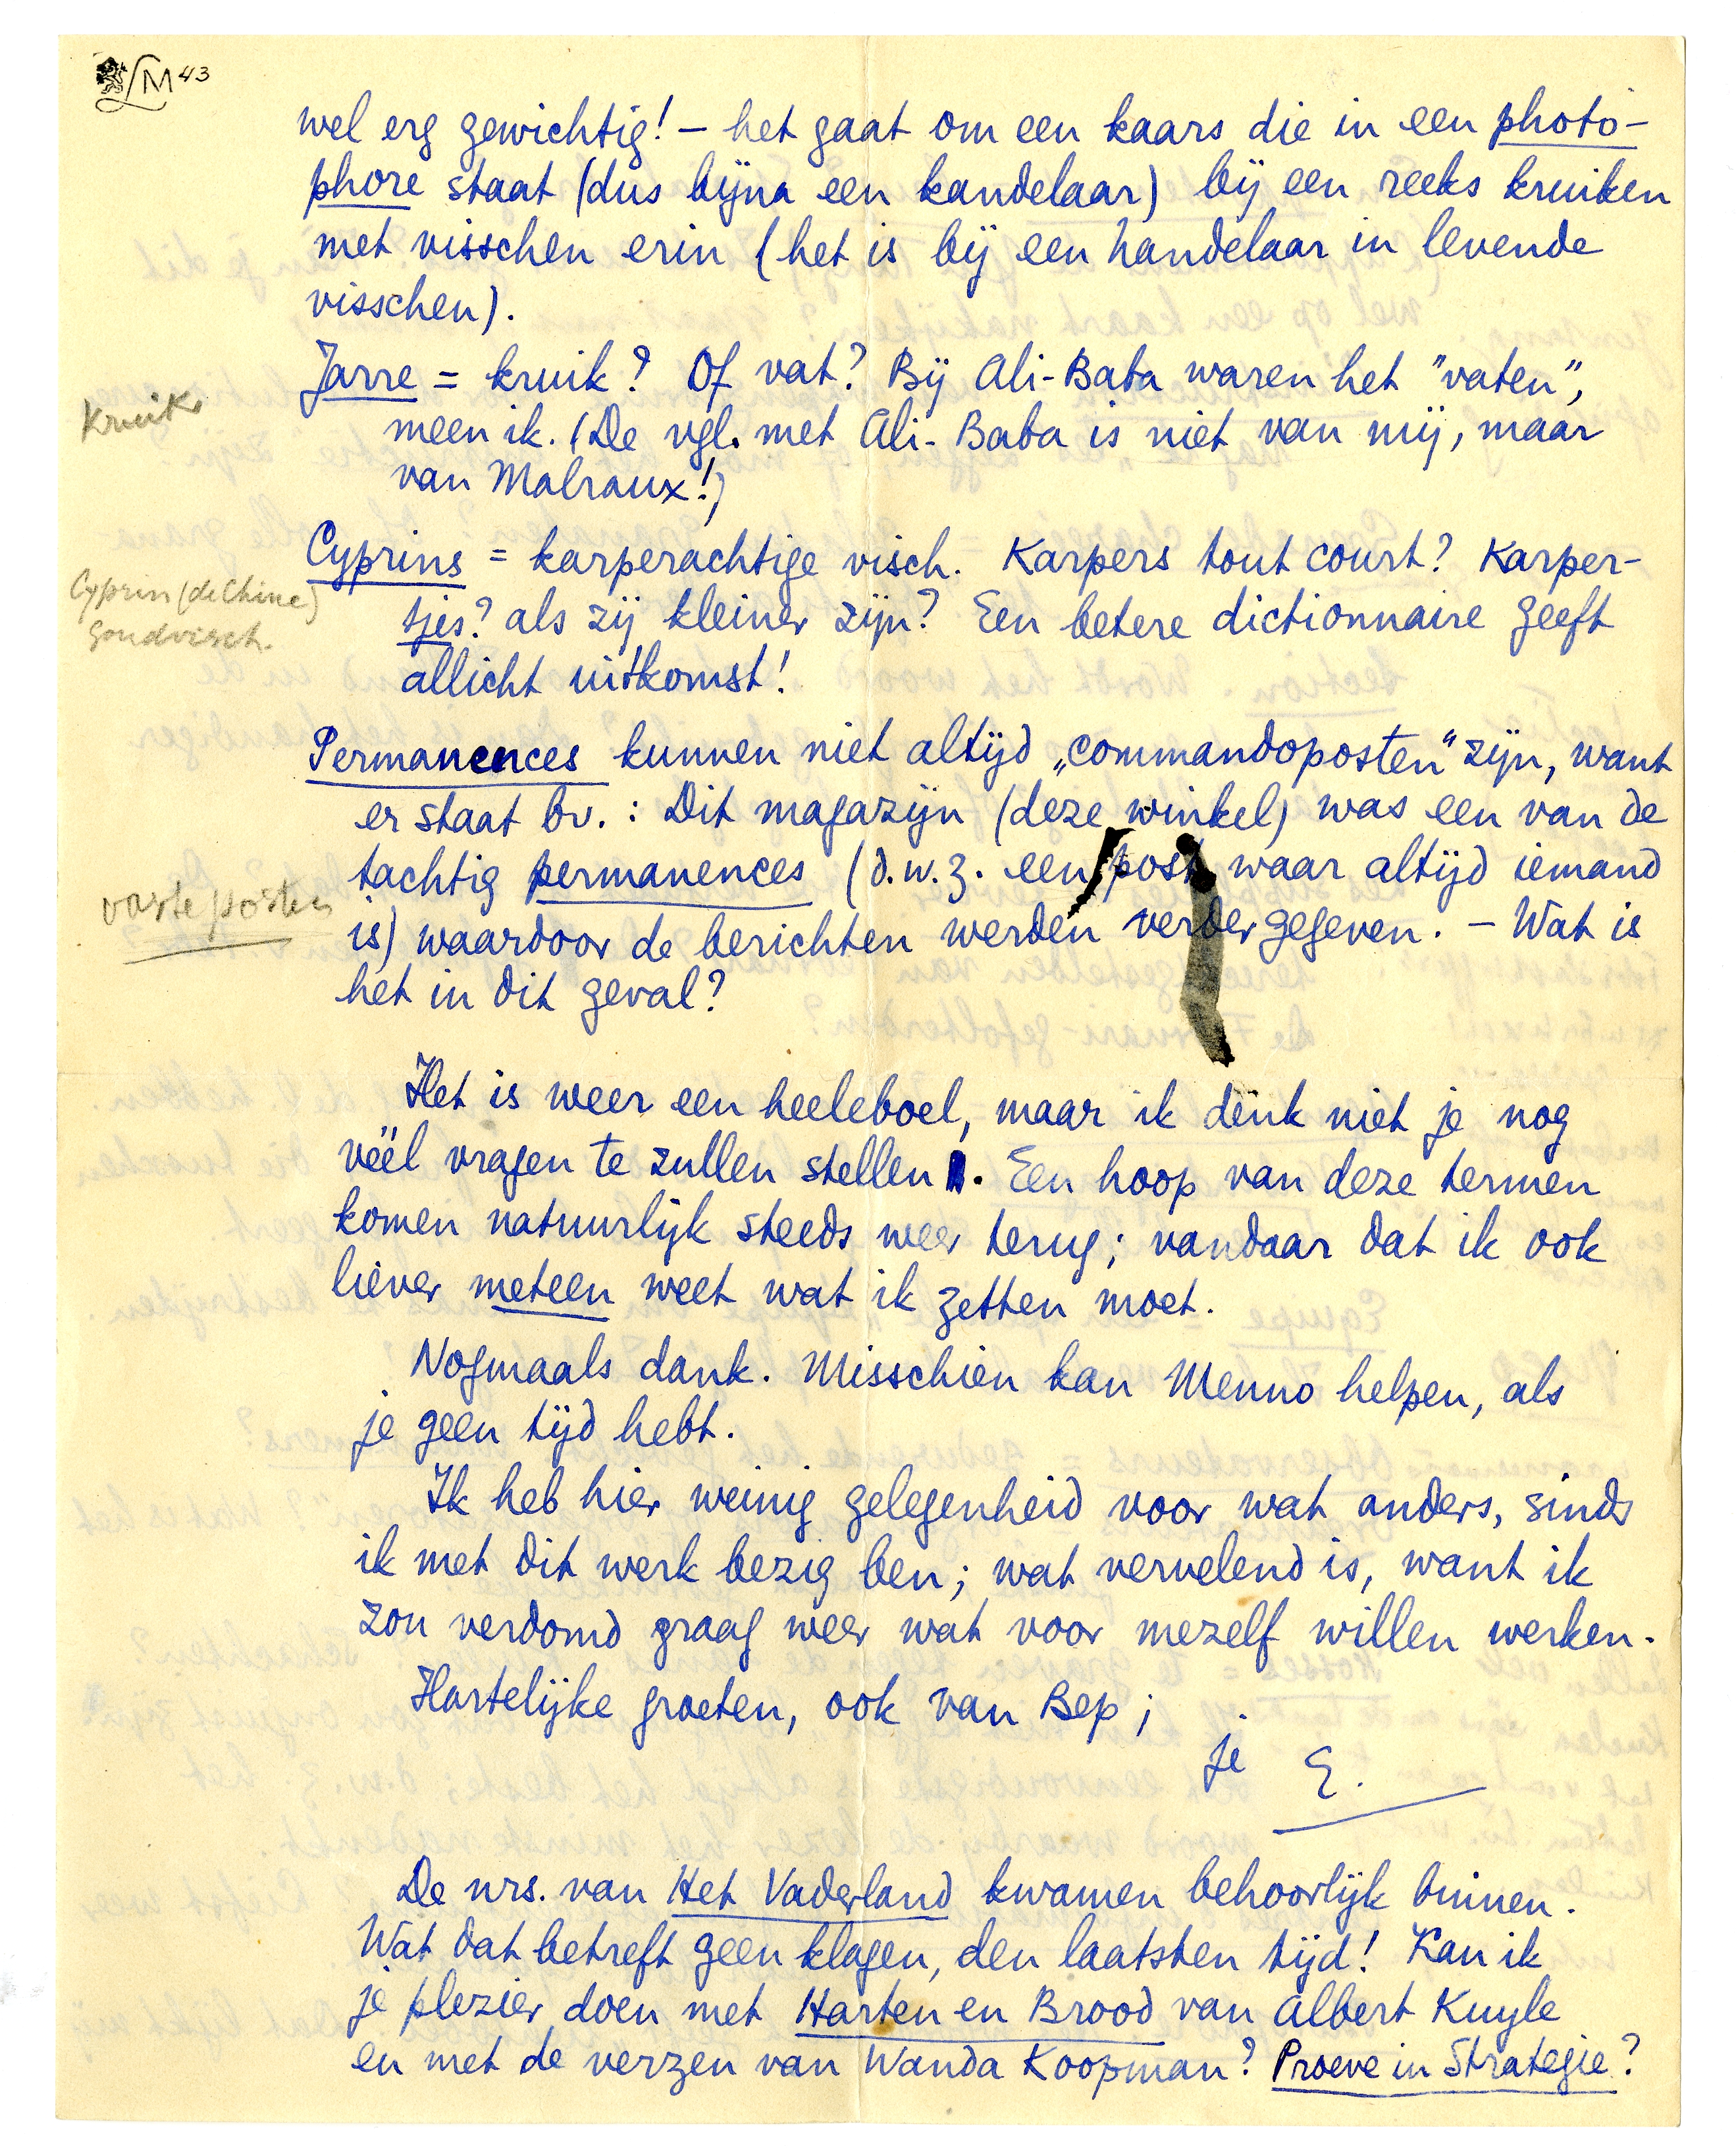 LM 43
wel erg gewichtig! – het gaat om een kaars die in een photo-
phore staat (dus bijna een kandelaar) bij een reeks kruiken
met visschen erin (het is bij een handelaar in levende
visschen).
Jarre = kruik? Of vat? Bij Ali-Baba waren het "vaten",
Kruik
meen ik. (De vgl. met Ali-Baba is niet van mij, maar
van Malraux!)
Cyprins = karperachtige visch. Karpers tout court? Karper-
Cyprin (de Chine)
goudvisch.
tjes? als zij kleiner zijn? Een betere dictionnaire geeft
allicht uitkomst!
Permanences kunnen niet altijd „commandoposten" zijn, want
er staat bv.: Dit magazijn (deze winkel) was een van de
tachtig permanences (d.w.z. een post waar altijd iemand
vaste posten
is) waardoor de berichten werden verder gegeven. – Wat is
het in dit geval?
Het is weer een heeleboel, maar ik denk niet je nog
véél vragen te zullen stellen. Een hoop van deze termen
komen natuurlijk steeds weer terug; vandaar dat ik ook
liever meteen weet wat ik zetten moet.
Nogmaals dank. Misschien kan Menno helpen, als
je geen tijd hebt.
Ik heb hier weinig gelegenheid voor wat anders, sinds
ik met dit werk bezig ben; wat vervelend is, want ik
zou verdomd graag weer wat voor mezelf willen werken.
Hartelijke groeten, ook van Bep;
je E.
De nrs. van Het Vaderland kwamen behoorlijk binnen.
Wat dat betreft geen klagen, den laatsten tijd! Kan ik
je plezier doen met Harten en Brood van Albert Kuyle
en met de verzen van Wanda Koopman? Proeve in Strategie?